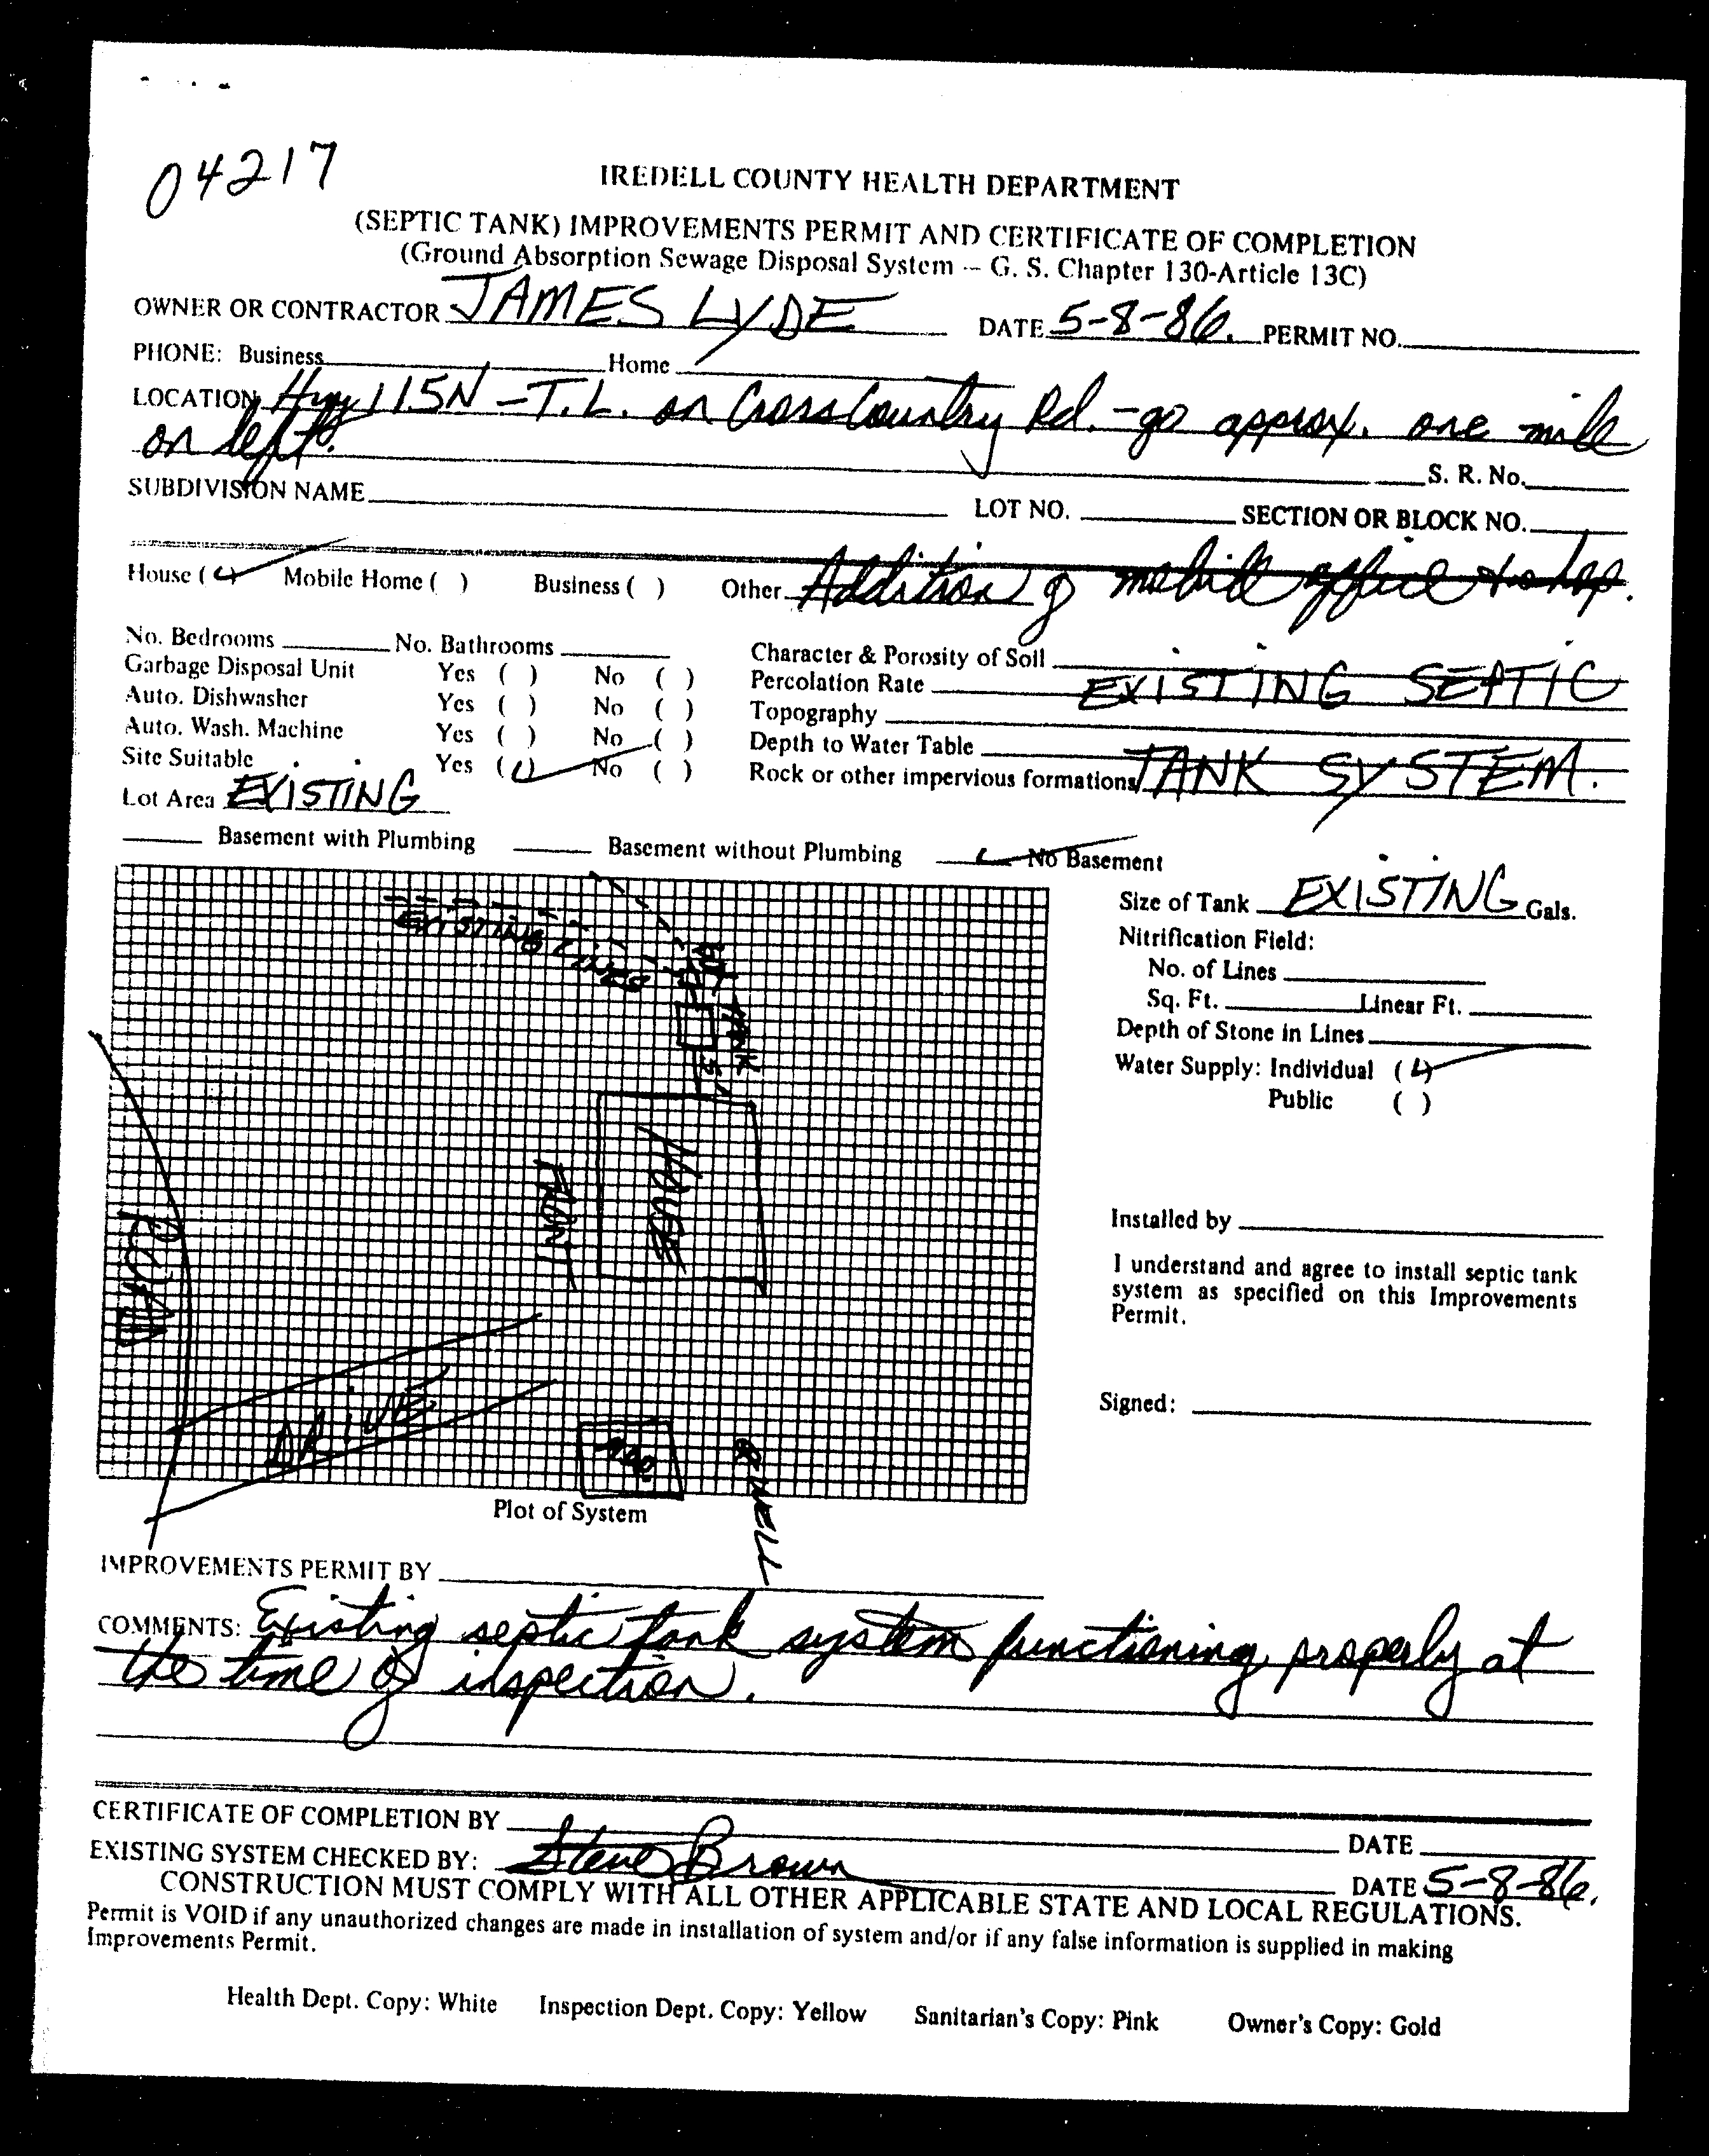 04217
IREDELL COUNTY HEALTH DEPARTMENT
(SEPTIC TANK) IMPROVEMENTS PERMIT AND CERTIFICATE OF COMPLETION
(Ground Absorption Sewage Disposal System -- G. S. Chapter 130-Article 13C)
OWNER OR CONTRACTOR JAMES LYDE DATE 5-8-86. PERMIT NO.
PHONE: Business Home
LOCATION Hwy 115N - T.L. on Cross Country Rd. - go approx. one mile
on left.
S. R. No.
SUBDIVISION NAME LOT NO. SECTION OR BLOCK NO.
House (✓) Mobile Home ( ) Business ( ) Other Addition of mobile office + shop.
No. Bedrooms No. Bathrooms Character & Porosity of Soil
Garbage Disposal Unit Yes ( ) No ( ) Percolation Rate EXISTING SEPTIC
Auto. Dishwasher Yes ( ) No ( ) Topography
Auto. Wash. Machine Yes ( ) No ( ) Depth to Water Table
Site Suitable Yes (✓) No ( ) Rock or other impervious formations TANK SYSTEM.
Lot Area EXISTING
Basement with Plumbing Basement without Plumbing ✓ No Basement
Size of Tank EXISTING Gals.
Nitrification Field:
No. of Lines
Sq. Ft. Linear Ft.
Depth of Stone in Lines
Water Supply: Individual (✓)
Public ( )
Installed by
I understand and agree to install septic tank
system as specified on this Improvements
Permit.
Signed:
EXISTING LINES
TANK
5'
HOUSE
FRONT
ROAD
DRIVE
WELL
Plot of System
IMPROVEMENTS PERMIT BY
COMMENTS: Existing septic tank system functioning properly at
the time of inspection.
CERTIFICATE OF COMPLETION BY DATE
EXISTING SYSTEM CHECKED BY: Steve Brown DATE 5-8-86.
CONSTRUCTION MUST COMPLY WITH ALL OTHER APPLICABLE STATE AND LOCAL REGULATIONS.
Permit is VOID if any unauthorized changes are made in installation of system and/or if any false information is supplied in making
Improvements Permit.
Health Dept. Copy: White Inspection Dept. Copy: Yellow Sanitarian's Copy: Pink Owner's Copy: Gold